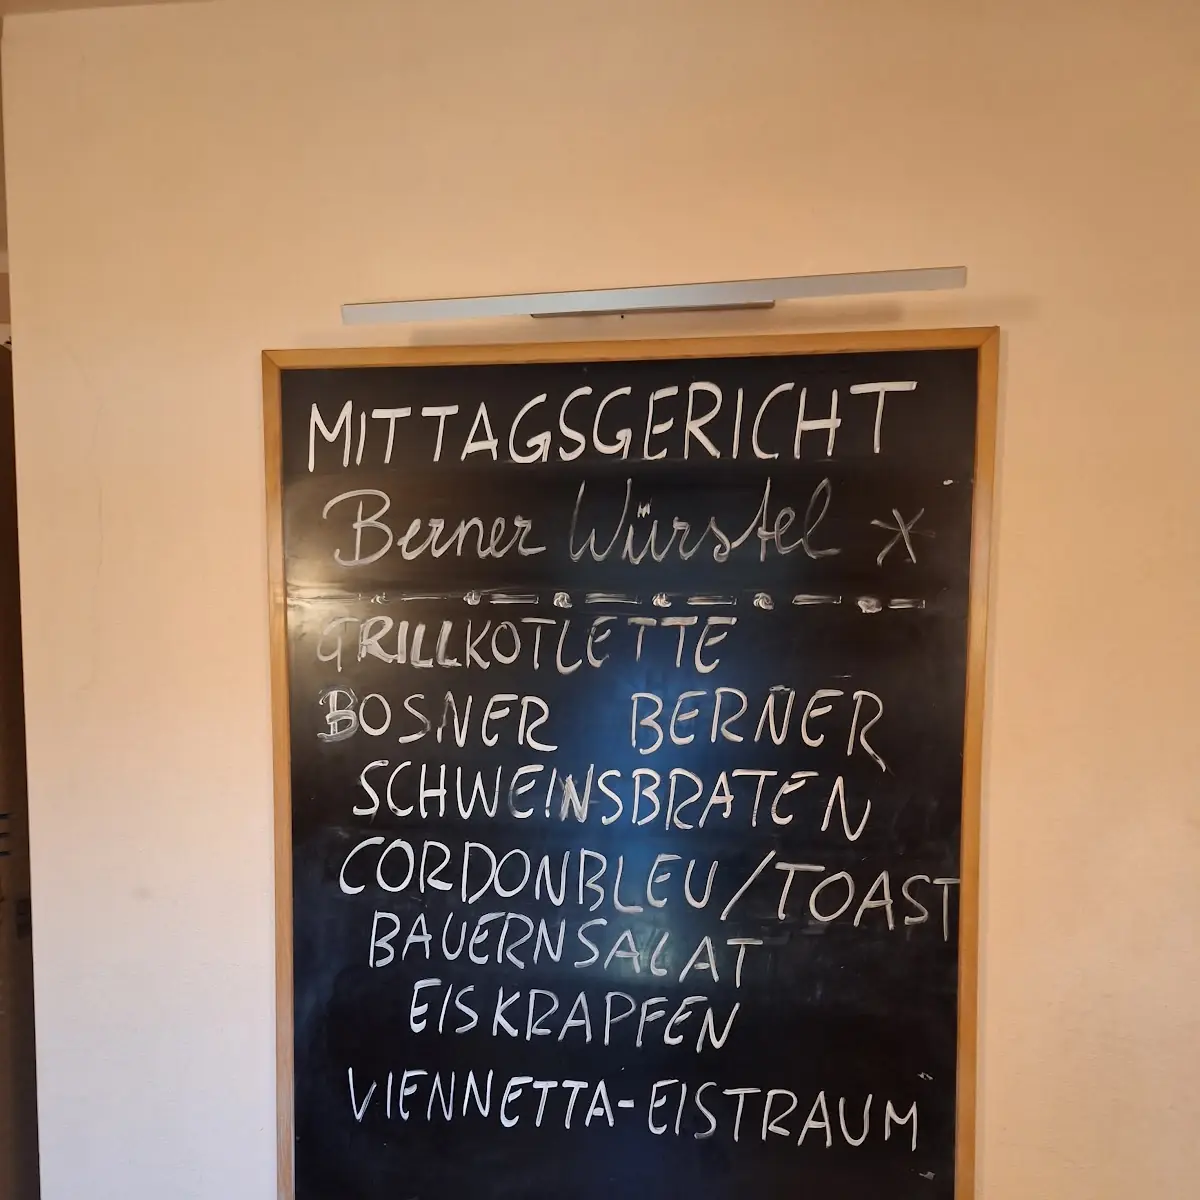 MITTAGSGERICHT
Berner Würstel *
GRILLKOTLETTE
BOSNER BERNER
SCHWEINSBRATEN
CORDONBLEU/TOAST
BAUERNSALAT
EISKRAPFEN
VIENNETTA-EISTRAUM